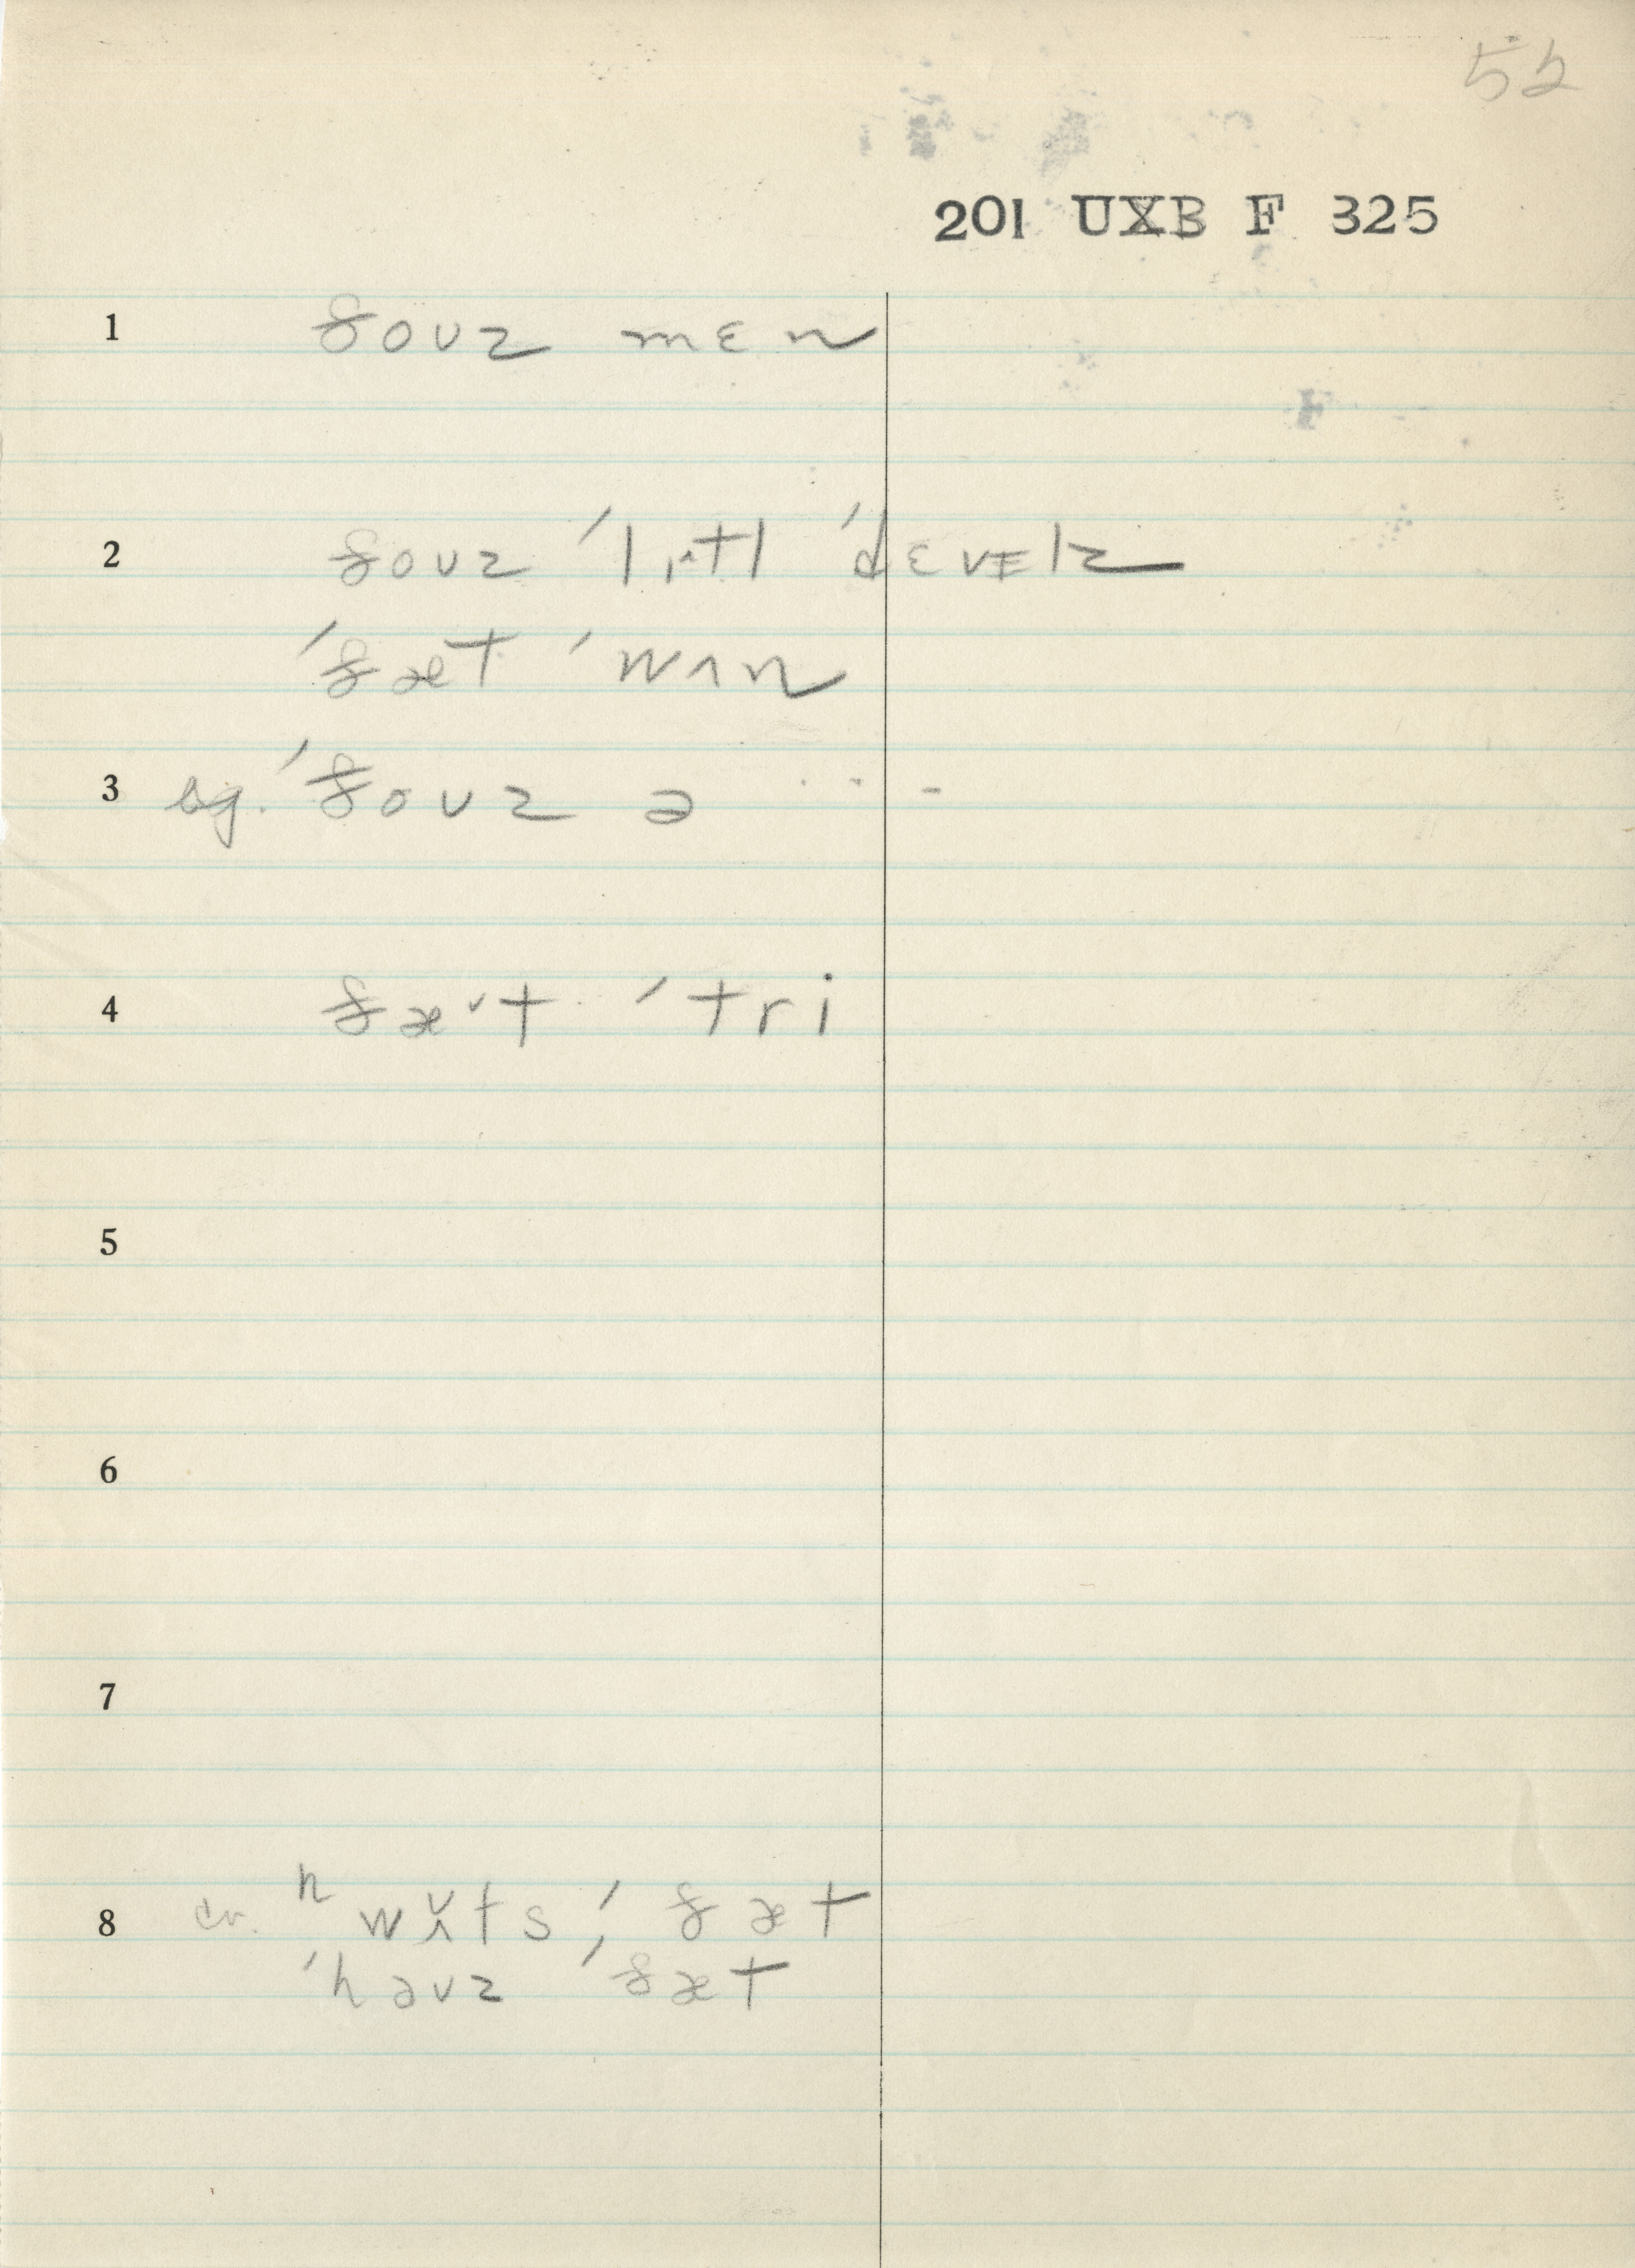 52
201 UXB F 325
1 ðoʊz mɛn
2 ðoʊz ˈlɪ^tl ˈdɛvɪlz
ˈðæt ˈwʌn
3 sg. ˈðoʊz ə ... -
4 ðæˇt ˈtri
5
6
7
8 cv. ʰwʌ̌ts ; ˈðæt
ˈhaʊz ˈðæt